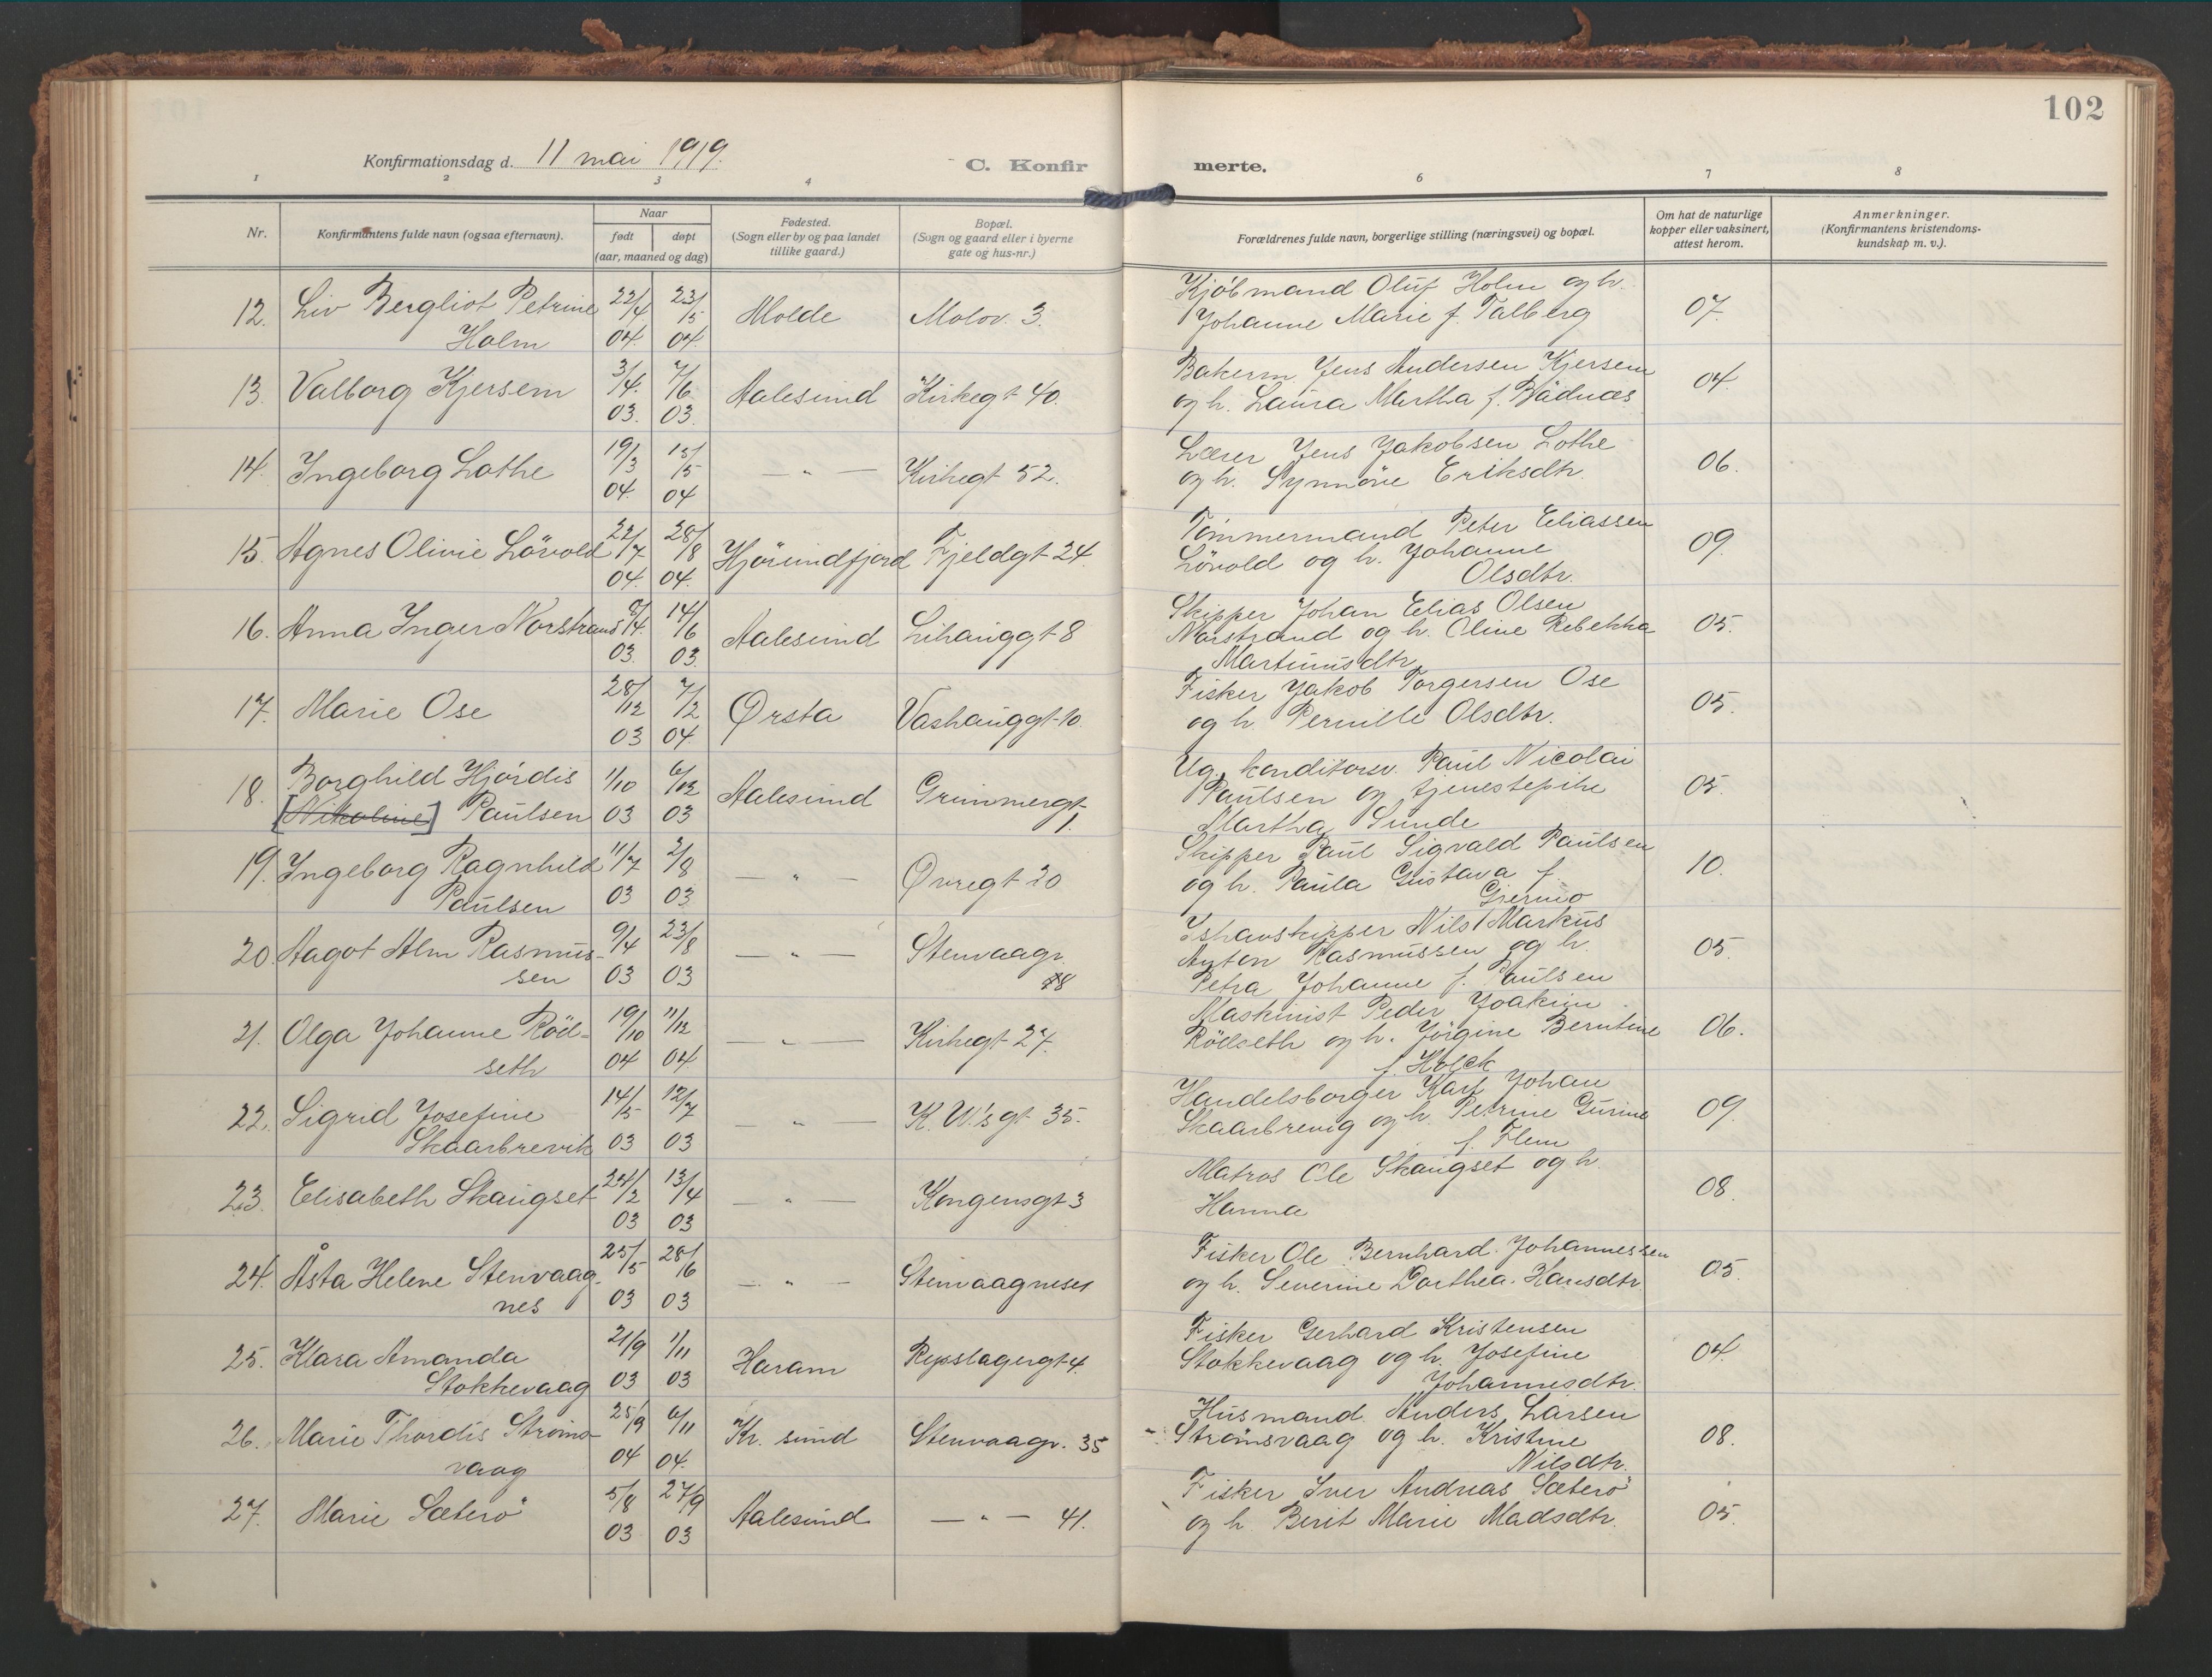 102
Konfirmationsdag d. 11 mai 1919.
C. Konfirmerte.
1 2 3 4 6 7 8
Nr.
Konfirmantens fulde navn (ogsaa efternavn).
Naar
født døpt
(aar, maaned og dag)
Fødested.
(Sogn eller by og paa landet
tillike gaard.)
Bopæl.
(Sogn og gaard eller i byerne
gate og hus-nr.)
Forældrenes fulde navn, borgerlige stilling (næringsvei) og bopæl.
Om hat de naturlige
kopper eller vaksinert,
attest herom.
Anmerkninger.
(Konfirmantens kristendoms-
kundskap m. v.).
12. Liv Bergliot Petrine 22/4 23/5 Molde Molov. 3. Kjöbmand Oluf Holm og h. 07.
Holm 04. 04. Johanne Marie f. Talberg
13. Valborg Kjersem 3/4. 7/6. Aalesund Kirkegt 40. Bakerm. Jens Andersen Kjersem 04.
03. 03. og h. Laura Martha f. Bådnæs
14. Ingeborg Lothe 19/3 15/5 — " — Kirkegt 52. Lærer Jens Jakobsen Lothe 06.
04. 04 og h. Synnöve Eriksdtr.
15. Agnes Olivie Lövold 22/7 28/8 Hjörundfjord Fjeldgt 24. Tömmermand Peter Eliassen 09.
04. 04. Lövold og h. Johanne
Olsdtr.
16. Anna Inger Norstrand 8/4. 14/6 Aalesund Lihauggt 8 Skipper Johan Elias Olsen 05.
03. 03. Norstrand og h. Oline Rebekka
Martinusdtr.
17. Marie Ose 28/12 7/2 Ørsta Vashauggt 10. Fisker Jakob Torgersen Ose 05.
03 04 og h. Pernille Olsdtr.
18. Borghild Hjördis 1/10 6/12 Aalesund Grimmergt Ug. konditorsv. Paul Nicolai 05.
[Nikoline] Paulsen 03 03 1. Paulsen og tjenestepike
Martha Sunde
19. Ingeborg Ragnhild 11/7 2/8 — " — Øvregt 20 Skipper Paul Sigvald Paulsen 10.
Paulsen 03 03 og h. Paula Gustava f.
20. Aagot Alm Rasmus- 9/4 23/8 — " — Stenvaagv. Ishavskipper Nils Markus 05.
sen 03 03 Anton Rasmussen og h.
Petra Johanne f. Paulsen
21. Olga Johanne Röd- 19/10 11/12 — " — Kirkegt 27. Maskinist Peder Joakim 06.
seth 04 04 Rödseth og h. Jörgine Berntine
f. Holck
22. Sigrid Josefine 14/5 12/7 — " — K. W.'s gt 35. Handelsborger Karl Johan 09.
Skaarbrevik 03 03 Skaarbrevig og h. Petrine Gurine
f. Flem
23. Elisabeth Skaugset 24/2 13/4 — " — Kongensgt 3 Matros Ole Skaugset og h. 08.
03 03 Hanna
24. Åsta Helene Stenvaag- 25/5 28/6 — " — Stenvaagneset Fisker Ole Bernhard Johannessen 05.
nes 03 03 og h. Severine Dorthea Hansdtr.
25. Klara Amanda 21/9 1/11 Haram Repslagergt 4. Fisker Gerhard Kristensen 04.
Stokkevaag 03 03 Stokkevaag og h. Josefine
Johannesdtr.
26. Marie Thordis Ströms- 25/9 6/11 Kr. sund Stenvaagv. 35 Husmand Anders Larsen 08.
vaag 04 04. Strömsvaag og h. Kristine
Nilsdtr.
27. Marie Sæterö 5/8 27/9 Aalesund — " — 41. Fisker Iver Andreas Sæterö 05.
03 03 og h. Berit Marie Madsdtr.